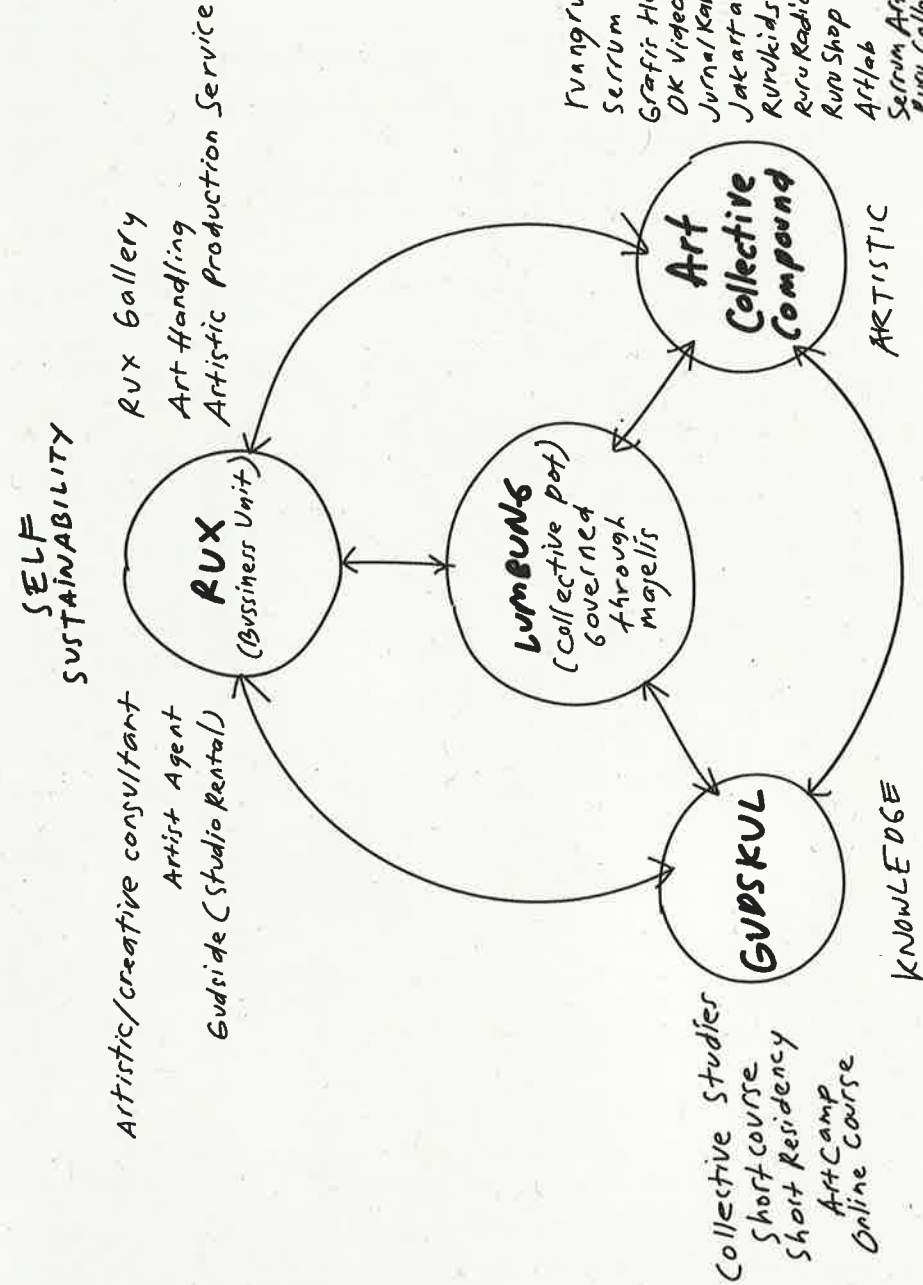 SELF
SUSTAINABILITY
Artistic/creative consultant
Artist Agent
Gudside (Studio Rental)
RUX
(Bussiness Unit)
RUX Gallery
Art Handling
Artistic Production Service
LUMBUNG
(Collective pot)
Governed
through
majelis
GUDSKUL
Collective Studies
Short course
Short Residency
Art Camp
Online Course
KNOWLEDGE
Art
Collective
Compound
ARTISTIC
Serrum
Grafis
OK Video
Jurnal
Jakarta
Rurukids
Ruru
Ruru Shop
Artlab
Serrum